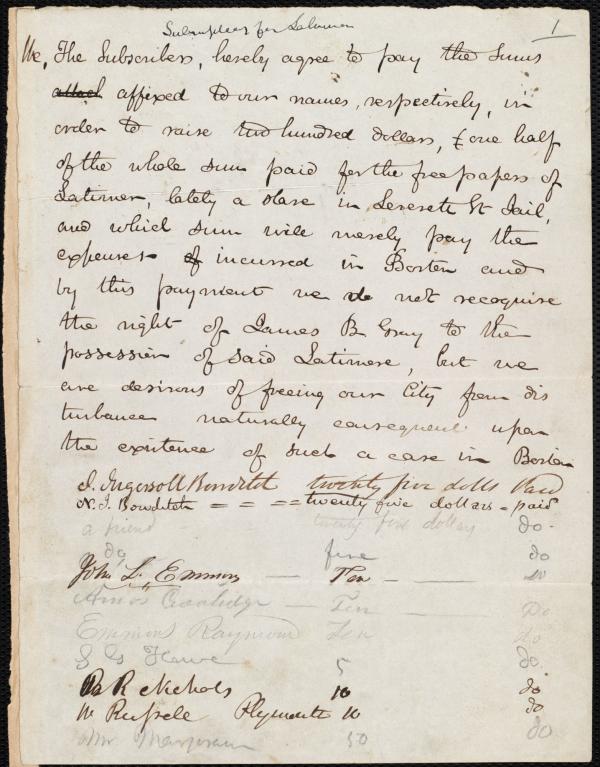 Subscribers for Latimer
1
We, The Subscribers, hereby agree to pay the sums
attach affixed to our names, respectively, in
order to raise two hundred dollars, & one half
of the whole sum paid for the free papers of
Latimer, lately a slave in Leverett St Jail,
and which sum will merely pay the
expenses of incurred in Boston and
by this payment we do not recognise
the right of James B Gray to the
possession of said Latimere, but we
are desirous of freeing our City from dis
turbance naturally consequent upon
the existence of such a case in Boston
J. Ingersoll Bowditch twenty five dolls Paid
N. I. Bowditch = = == twenty five dollars - paid
a friend twenty five dollars do.
do, five do
John L. Emmons — Ten - — do
Amos Coolidge — Ten — Do
Emmons Raymond Ten do
S G Howe 5 do.
B R Nichols 10 do.
W Russele Plymouth 10 do
Mr 50 do